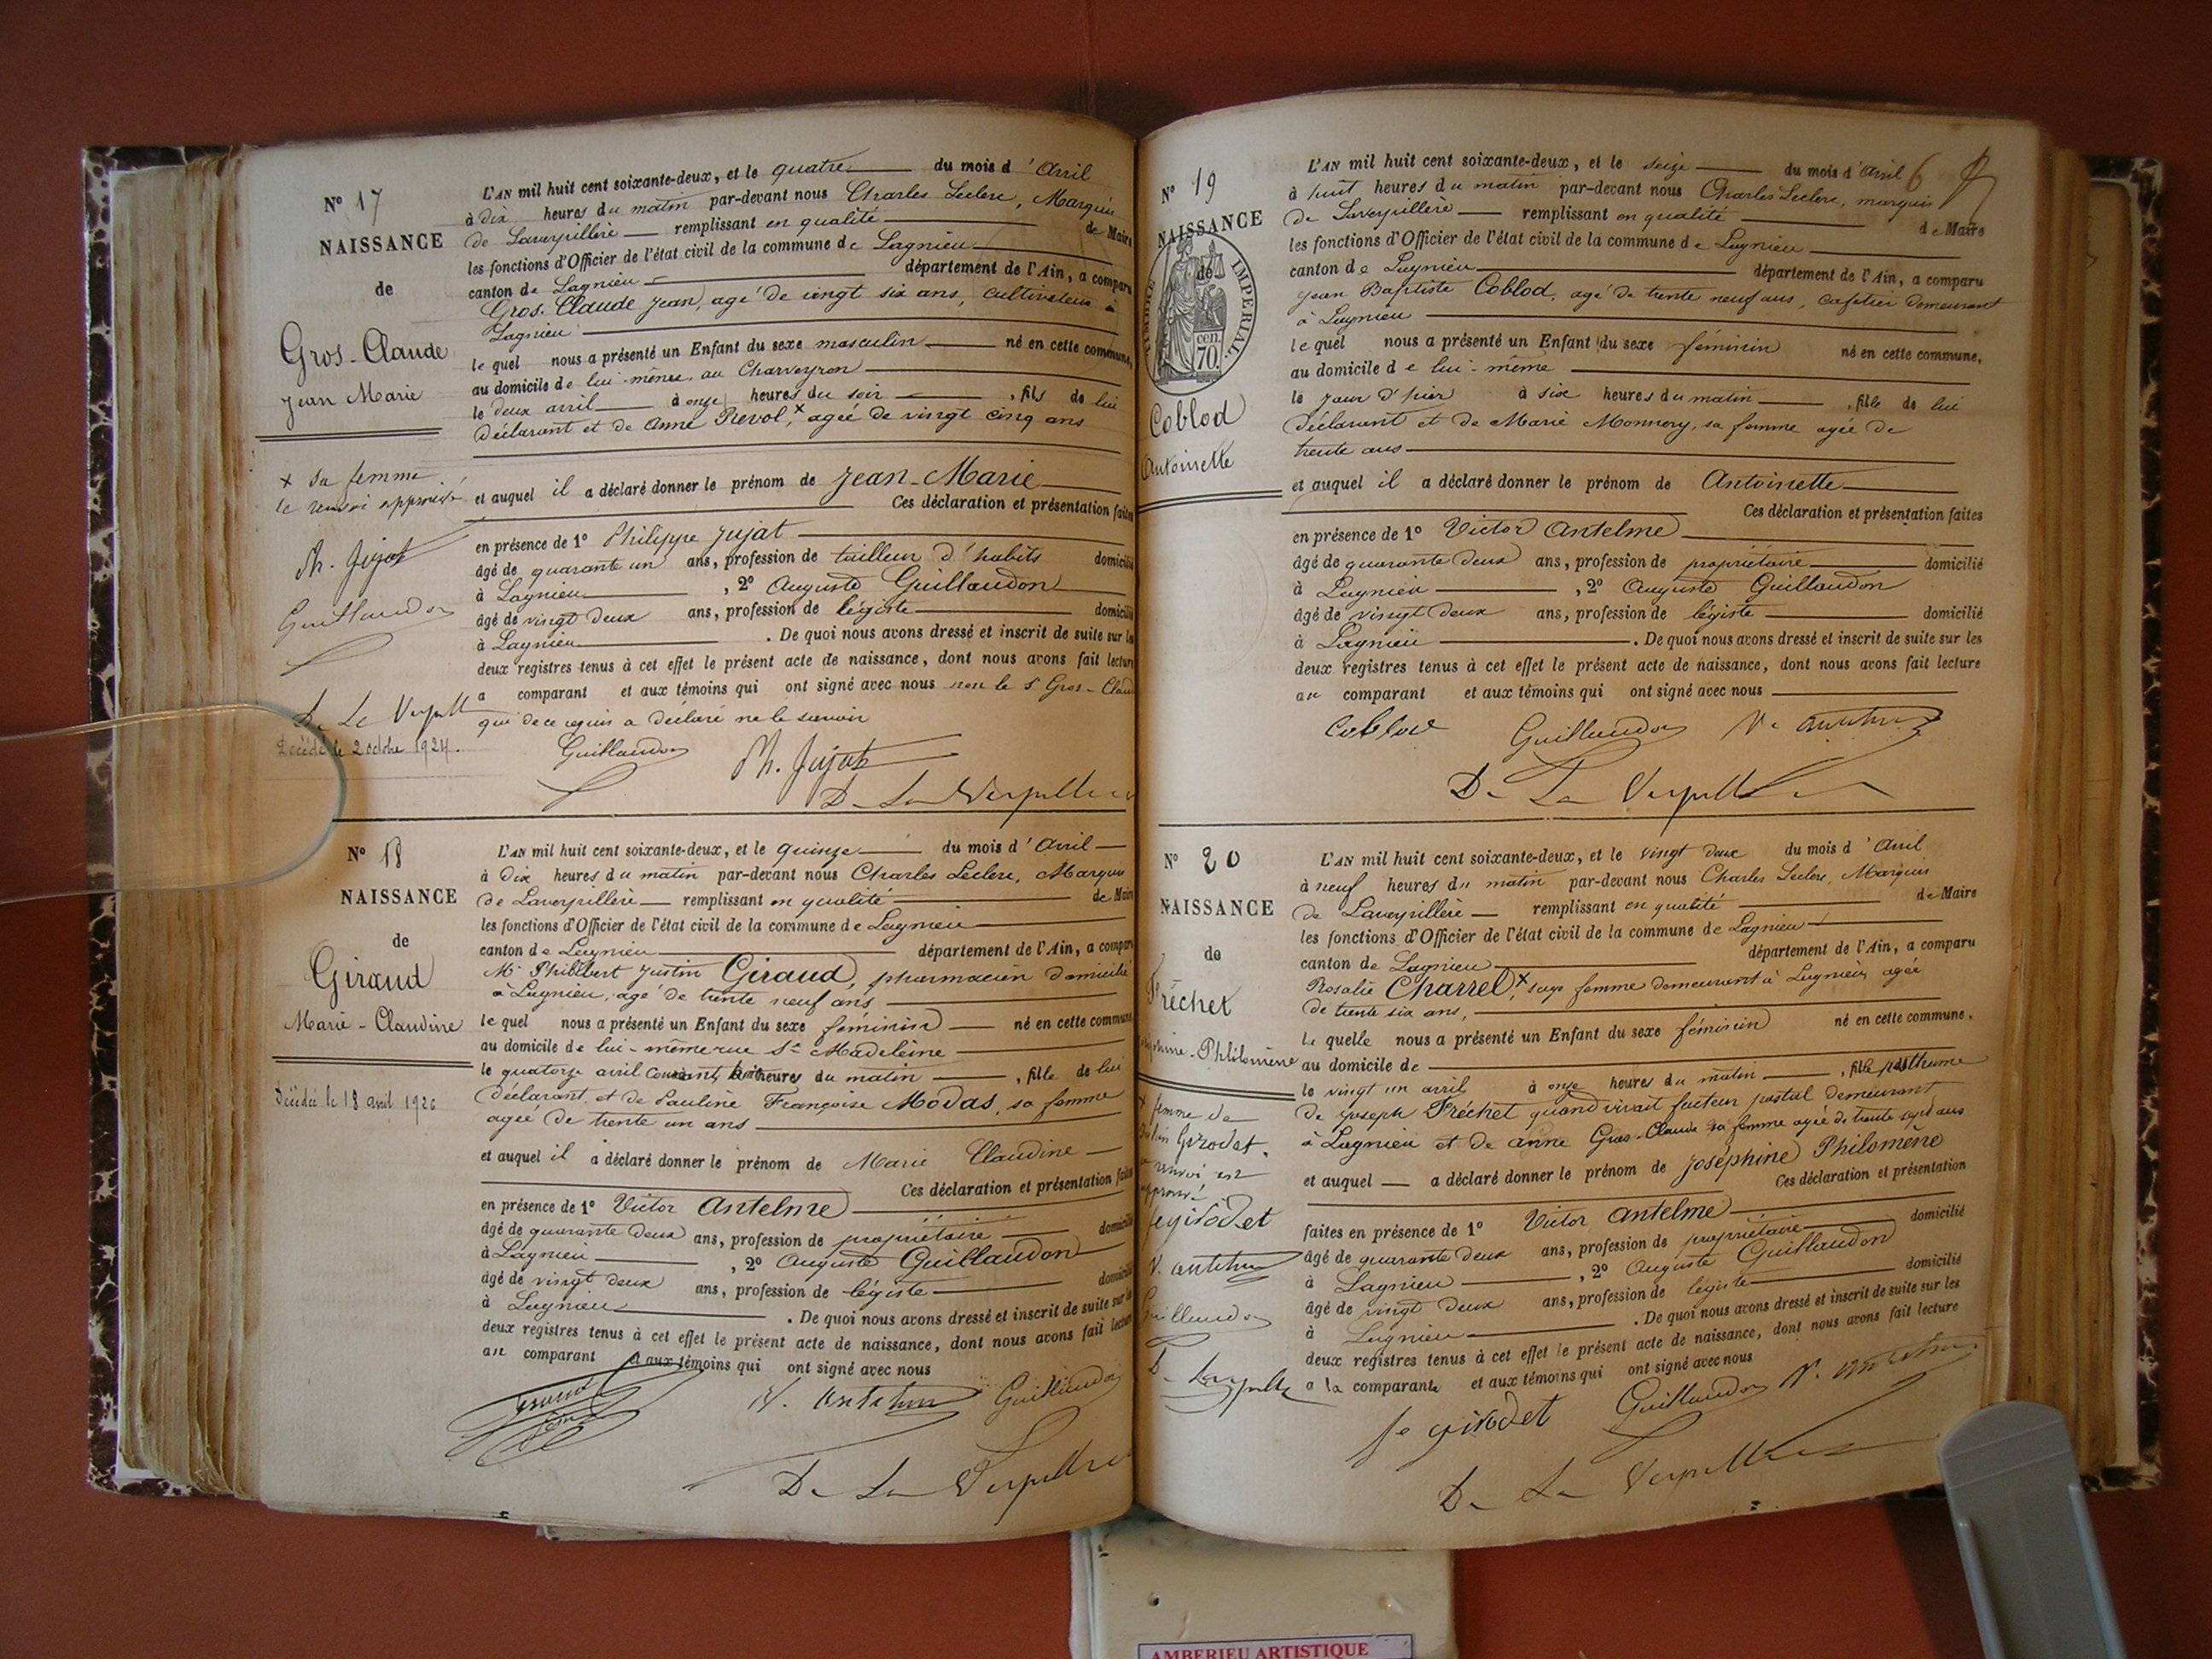 N° 17
NAISSANCE
de
Gros-Claude
Jean Marie
x sa femme
le renvoi approuvé
Ph. Jujat
Guillaudon
De La Verpill
Décédé le 2 octobre 1924.
L'AN mil huit cent soixante-deux, et le quatre du mois d'Avril
à dix heures du matin par-devant nous Charles Leclerc, Marquis
de Laverpillère remplissant en qualité de Maire
les fonctions d'Officier de l'état civil de la commune de Lagnieu
canton de Lagnieu département de l'Ain, a comparu
Gros-Claude Jean, agé de vingt six ans, cultivateur à
Lagnieu
le quel nous a présenté un Enfant du sexe masculin né en cette commune,
au domicile de lui-même, au Charveyron
le deux avril à onze heures du soir, fils de lui
déclarant et de Anne Revol, x agée de vingt cinq ans
et auquel il a déclaré donner le prénom de Jean-Marie
Ces déclaration et présentation faites
en présence de 1° Philippe Jujat
âgé de quarante un ans, profession de tailleur d'habits domicilié
à Lagnieu, 2° Auguste Guillaudon
âgé de vingt deux ans, profession de légiste domicilié
à Lagnieu. De quoi nous avons dressé et inscrit de suite sur les
deux registres tenus à cet effet le présent acte de naissance, dont nous avons fait lecture
a comparant et aux témoins qui ont signé avec nous non le s Gros-Claud
qui de ce requis a déclaré ne le savoir
Guillaudon Ph. Jujat
De La Verpillière
N° 18
NAISSANCE
de
Giraud
Marie-Claudine
Décédée le 18 avril 1926
L'AN mil huit cent soixante-deux, et le quinze du mois d'Avril
à dix heures du matin par-devant nous Charles Leclerc, Marquis
de Laverpillère remplissant en qualité de Maire
les fonctions d'Officier de l'état civil de la commune de Lagnieu
canton de Lagnieu département de l'Ain, a comparu
Mr Philibert Justin Giraud, pharmacien domicilié
à Lagnieu, agé de trente neuf ans
le quel nous a présenté un Enfant du sexe féminin né en cette commune
au domicile de lui-même rue Ste Madeleine
le quatorze avril courant, heures du matin, fille de lui
déclarant et de Pauline Françoise Modas, sa femme
agée de trente un ans
et auquel il a déclaré donner le prénom de Marie Claudine
Ces déclaration et présentation faites
en présence de 1° Victor Antelme
âgé de quarante deux ans, profession de propriétaire domicilié
à Lagnieu, 2° Auguste Guillaudon
âgé de vingt deux ans, profession de légiste domicilié
à Lagnieu. De quoi nous avons dressé et inscrit de suite sur les
deux registres tenus à cet effet le présent acte de naissance, dont nous avons fait lecture
au comparant et aux témoins qui ont signé avec nous
V. Antelme Guillaudon
De La Verpillière
N° 19
NAISSANCE
de
TIMBRE IMPERIAL.
cen.
70.
Coblod
Antoinette
L'AN mil huit cent soixante-deux, et le seize du mois d'Avril 6
à huit heures du matin par-devant nous Charles Leclerc, marquis
de Laverpillère remplissant en qualité de Maire
les fonctions d'Officier de l'état civil de la commune de Lagnieu
canton de Lagnieu département de l'Ain, a comparu
Jean Baptiste Coblod, agé de trente neuf ans, cafetier demeurant
à Lagnieu
le quel nous a présenté un Enfant du sexe féminin né en cette commune,
au domicile de lui-même
le jour d'hier à six heures du matin, fille de lui
déclarant et de Marie Monnery, sa femme agée de
trente ans
et auquel il a déclaré donner le prénom de Antoinette
Ces déclaration et présentation faites
en présence de 1° Victor Antelme
âgé de quarante deux ans, profession de propriétaire domicilié
à Lagnieu, 2° Auguste Guillaudon
âgé de vingt deux ans, profession de légiste domicilié
à Lagnieu. De quoi nous avons dressé et inscrit de suite sur les
deux registres tenus à cet effet le présent acte de naissance, dont nous avons fait lecture
au comparant et aux témoins qui ont signé avec nous
Coblod Guillaudon Vr Antelme
De La Verpillière
N° 20
NAISSANCE
de
Fréchet
Philomène
x femme de
Girodet.
renvoi est
approuvé
fe girodet
V. Antelme
Guillaudon
L'AN mil huit cent soixante-deux, et le vingt deux du mois d'Avril
à neuf heures du matin par-devant nous Charles Leclerc, Marquis
de Laverpillère remplissant en qualité de Maire
les fonctions d'Officier de l'état civil de la commune de Lagnieu
canton de Lagnieu département de l'Ain, a comparu
Rosalie Charrel, x sage femme demeurant à Lagnieu agée
de trente six ans,
la quelle nous a présenté un Enfant du sexe féminin né en cette commune,
au domicile de
le vingt un avril à onze heures du matin, fille posthume
de Joseph Fréchet quand vivait facteur postal demeurant
à Lagnieu et de Anne Gros-Claude sa femme agée de trente sept ans
et auquel a déclaré donner le prénom de Joséphine Philomène
Ces déclaration et présentation
faites en présence de 1° Victor Antelme
âgé de quarante deux ans, profession de propriétaire domicilié
à Lagnieu, 2° Auguste Guillaudon
âgé de vingt deux ans, profession de légiste domicilié
à Lagnieu. De quoi nous avons dressé et inscrit de suite sur les
deux registres tenus à cet effet le présent acte de naissance, dont nous avons fait lecture
a la comparante et aux témoins qui ont signé avec nous
fe girodet Guillaudon V. Antelme
De La Verpillière
AMBERIEU ARTISTIQUE